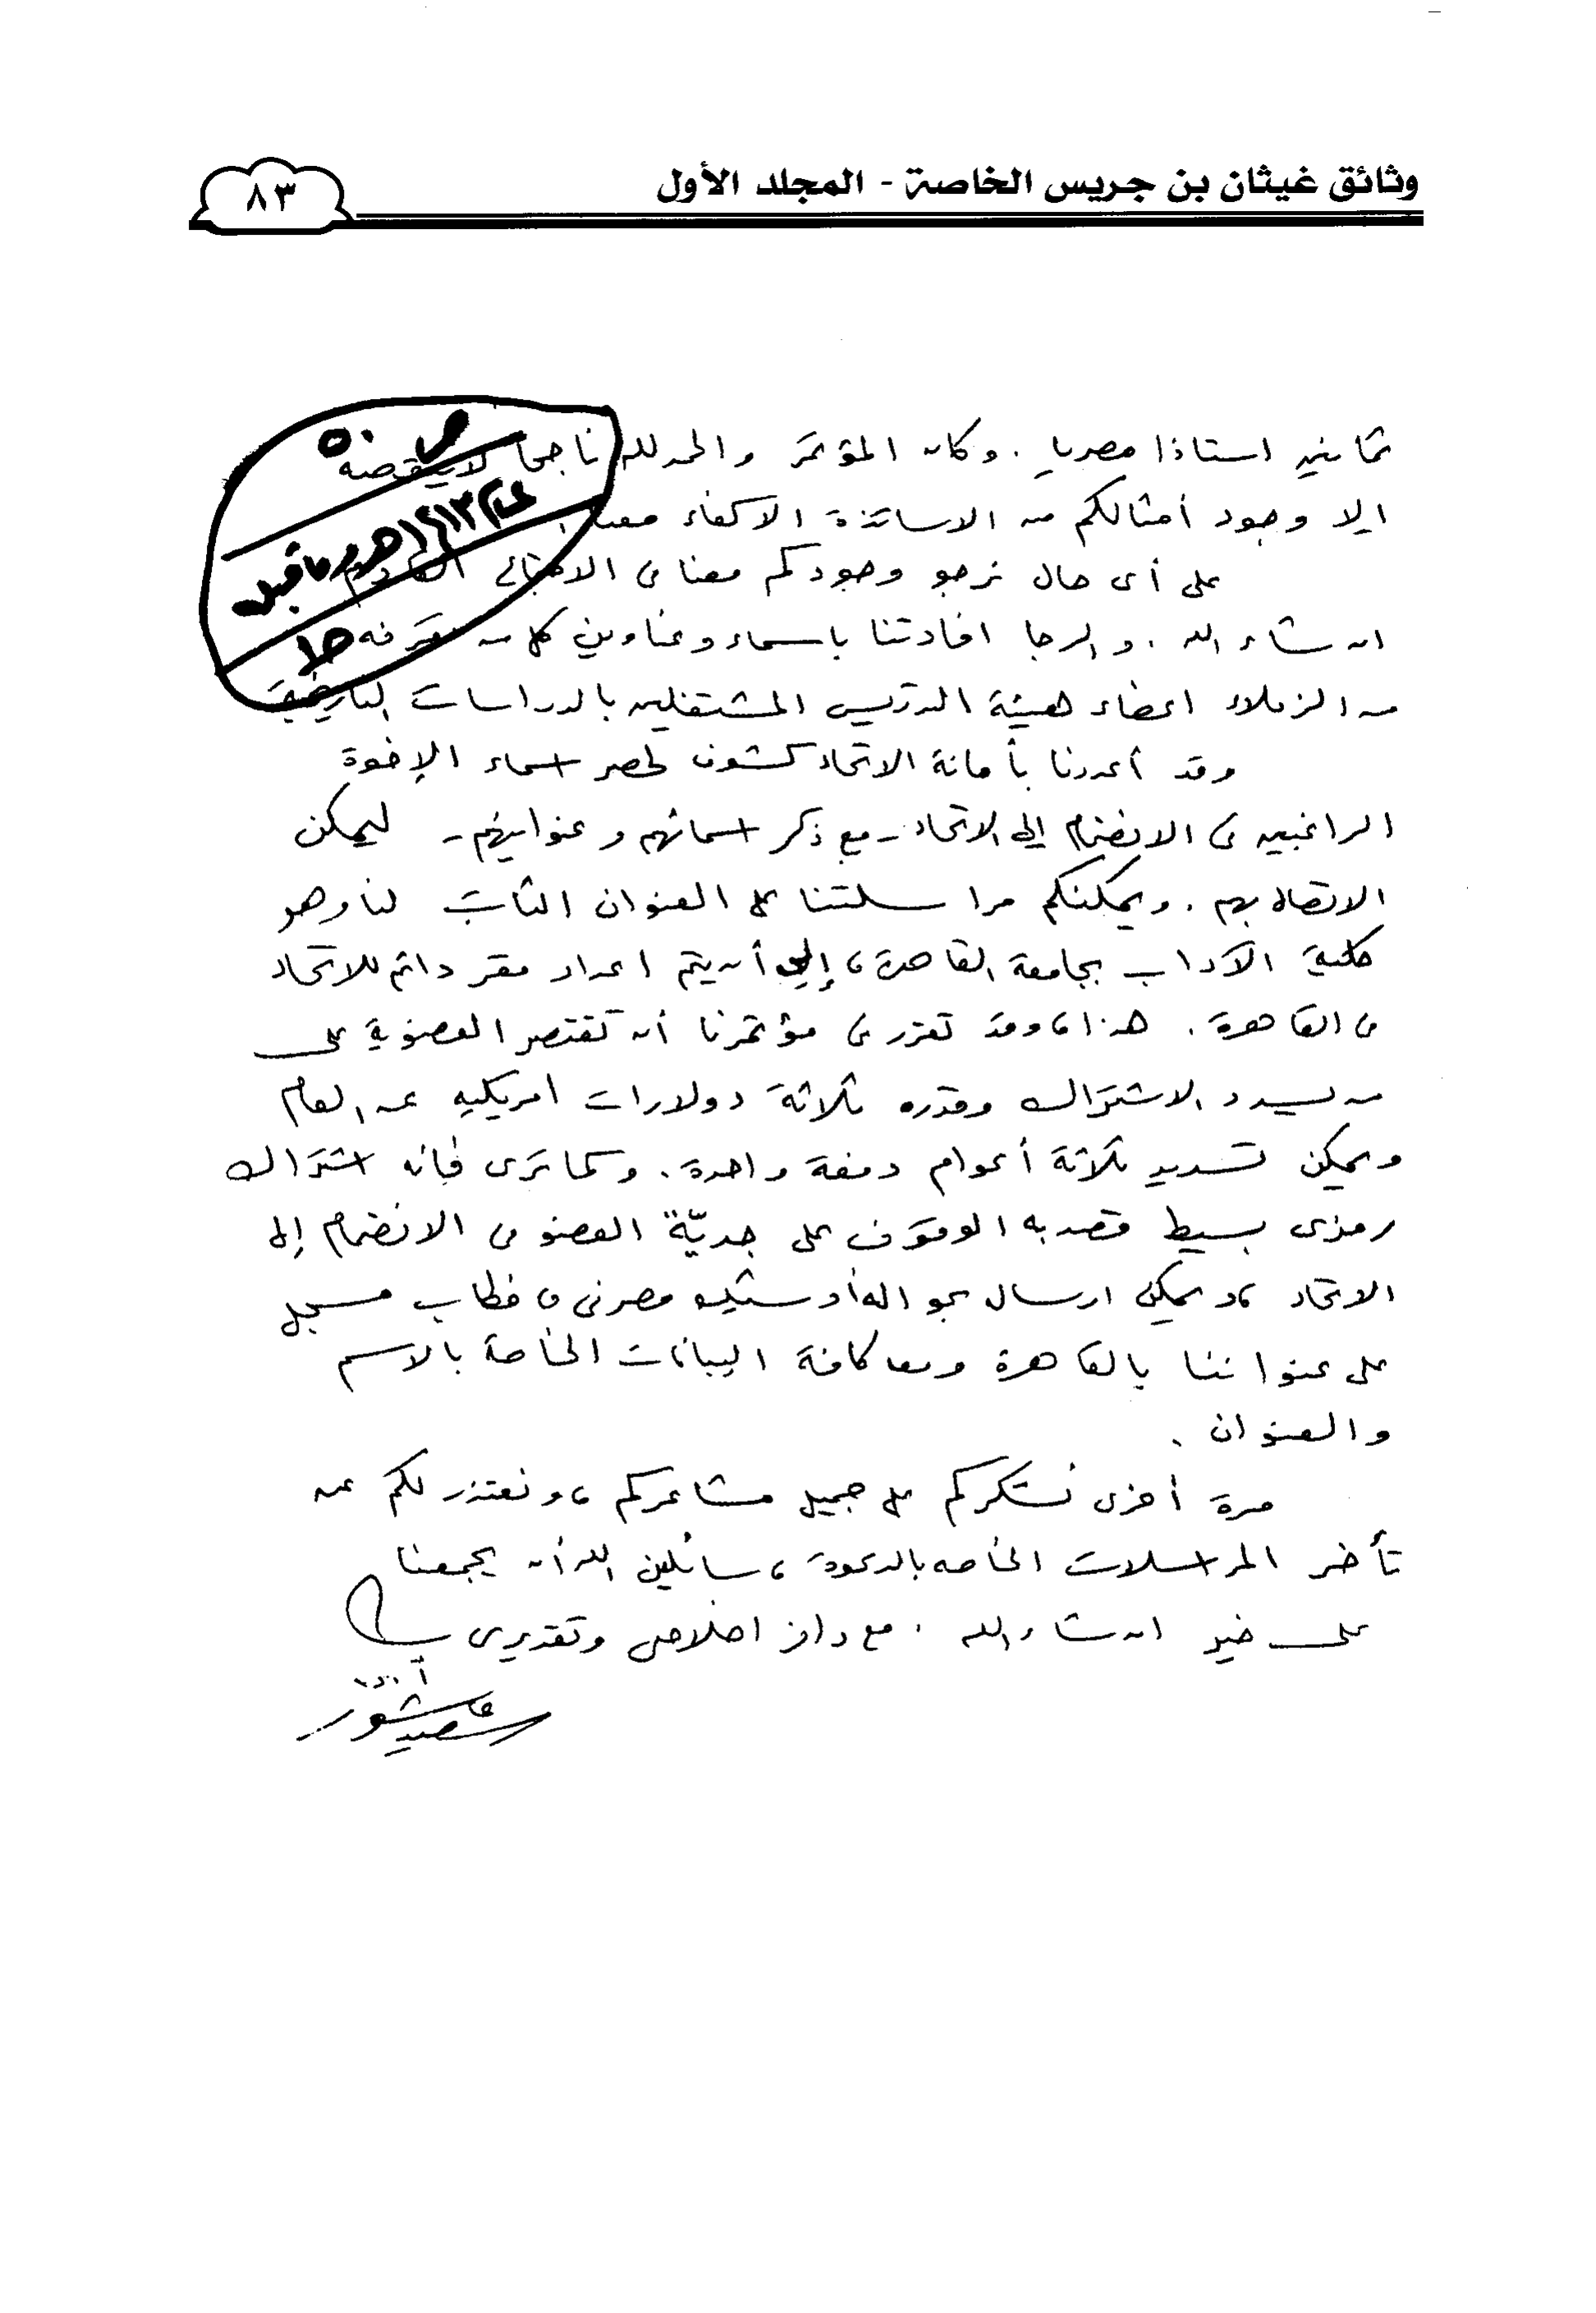 وثائق غيثان بن جريس الخاصة - المجلد الأول
٨٣
ثمانين استاذا مصريا . وكان المؤتمر والحمد لله ناجحا لاينقصه
الا وجود أمثالكم من الاساتذة الاكفاء معنا .
على أى حال نرجو وجودكم معنا فى القادم
ان شاء الله . والرجا افادتنا باسماء وعناوين كل من تعرفه
من الزملاء اعضاء هيئة التدريس المشتغلين بالدراسات التاريخية
وقد أعددنا بأمانة الاتحاد كشوف لحصر اسماء الإخوة
الراغبين فى الانضمام إلى الاتحاد - مع ذكر اسمائهم وعنوانيهم - ليمكن
الاتصال بهم . ويمكنكم مراسلتنا على العنوان الثابت لنا وهو
كلية الآداب بجامعة القاهرة ، إلى أن يتم اعداد مقر دائم للاتحاد
فى القاهرة . هذا ، وقد تقرر فى مؤتمرنا أن تقتصر العضوية على
من يسدد الاشتراك وقدره ثلاثة دولارات امريكيه عن العام
ويمكن تسديد ثلاثة أعوام دفعة واحدة . وكما ترى فإنه اشتراك
رمزى بسيط قصد به الوقوف على جديّة العضو فى الانضمام إلى
الاتحاد ، ويمكن ارسال حواله أو شيك مصرفى فى خطاب مسجل
على عنواننا بالقاهرة ومعا كافة البيانات الخاصة بالاسم
والعنوان .
مرة أخرى نشكركم على جميل مشاعركم ، ونعتذر لكم عن
تأخر المراسلات الخاصه بالدعوة ، سائلين الله أن يجمعنا
على خير ان شاء الله . مع وافر اخلاصى وتقديرى
سعيد عاشور
ص ٥٠
عام ١٤١٣هـ وما قبل